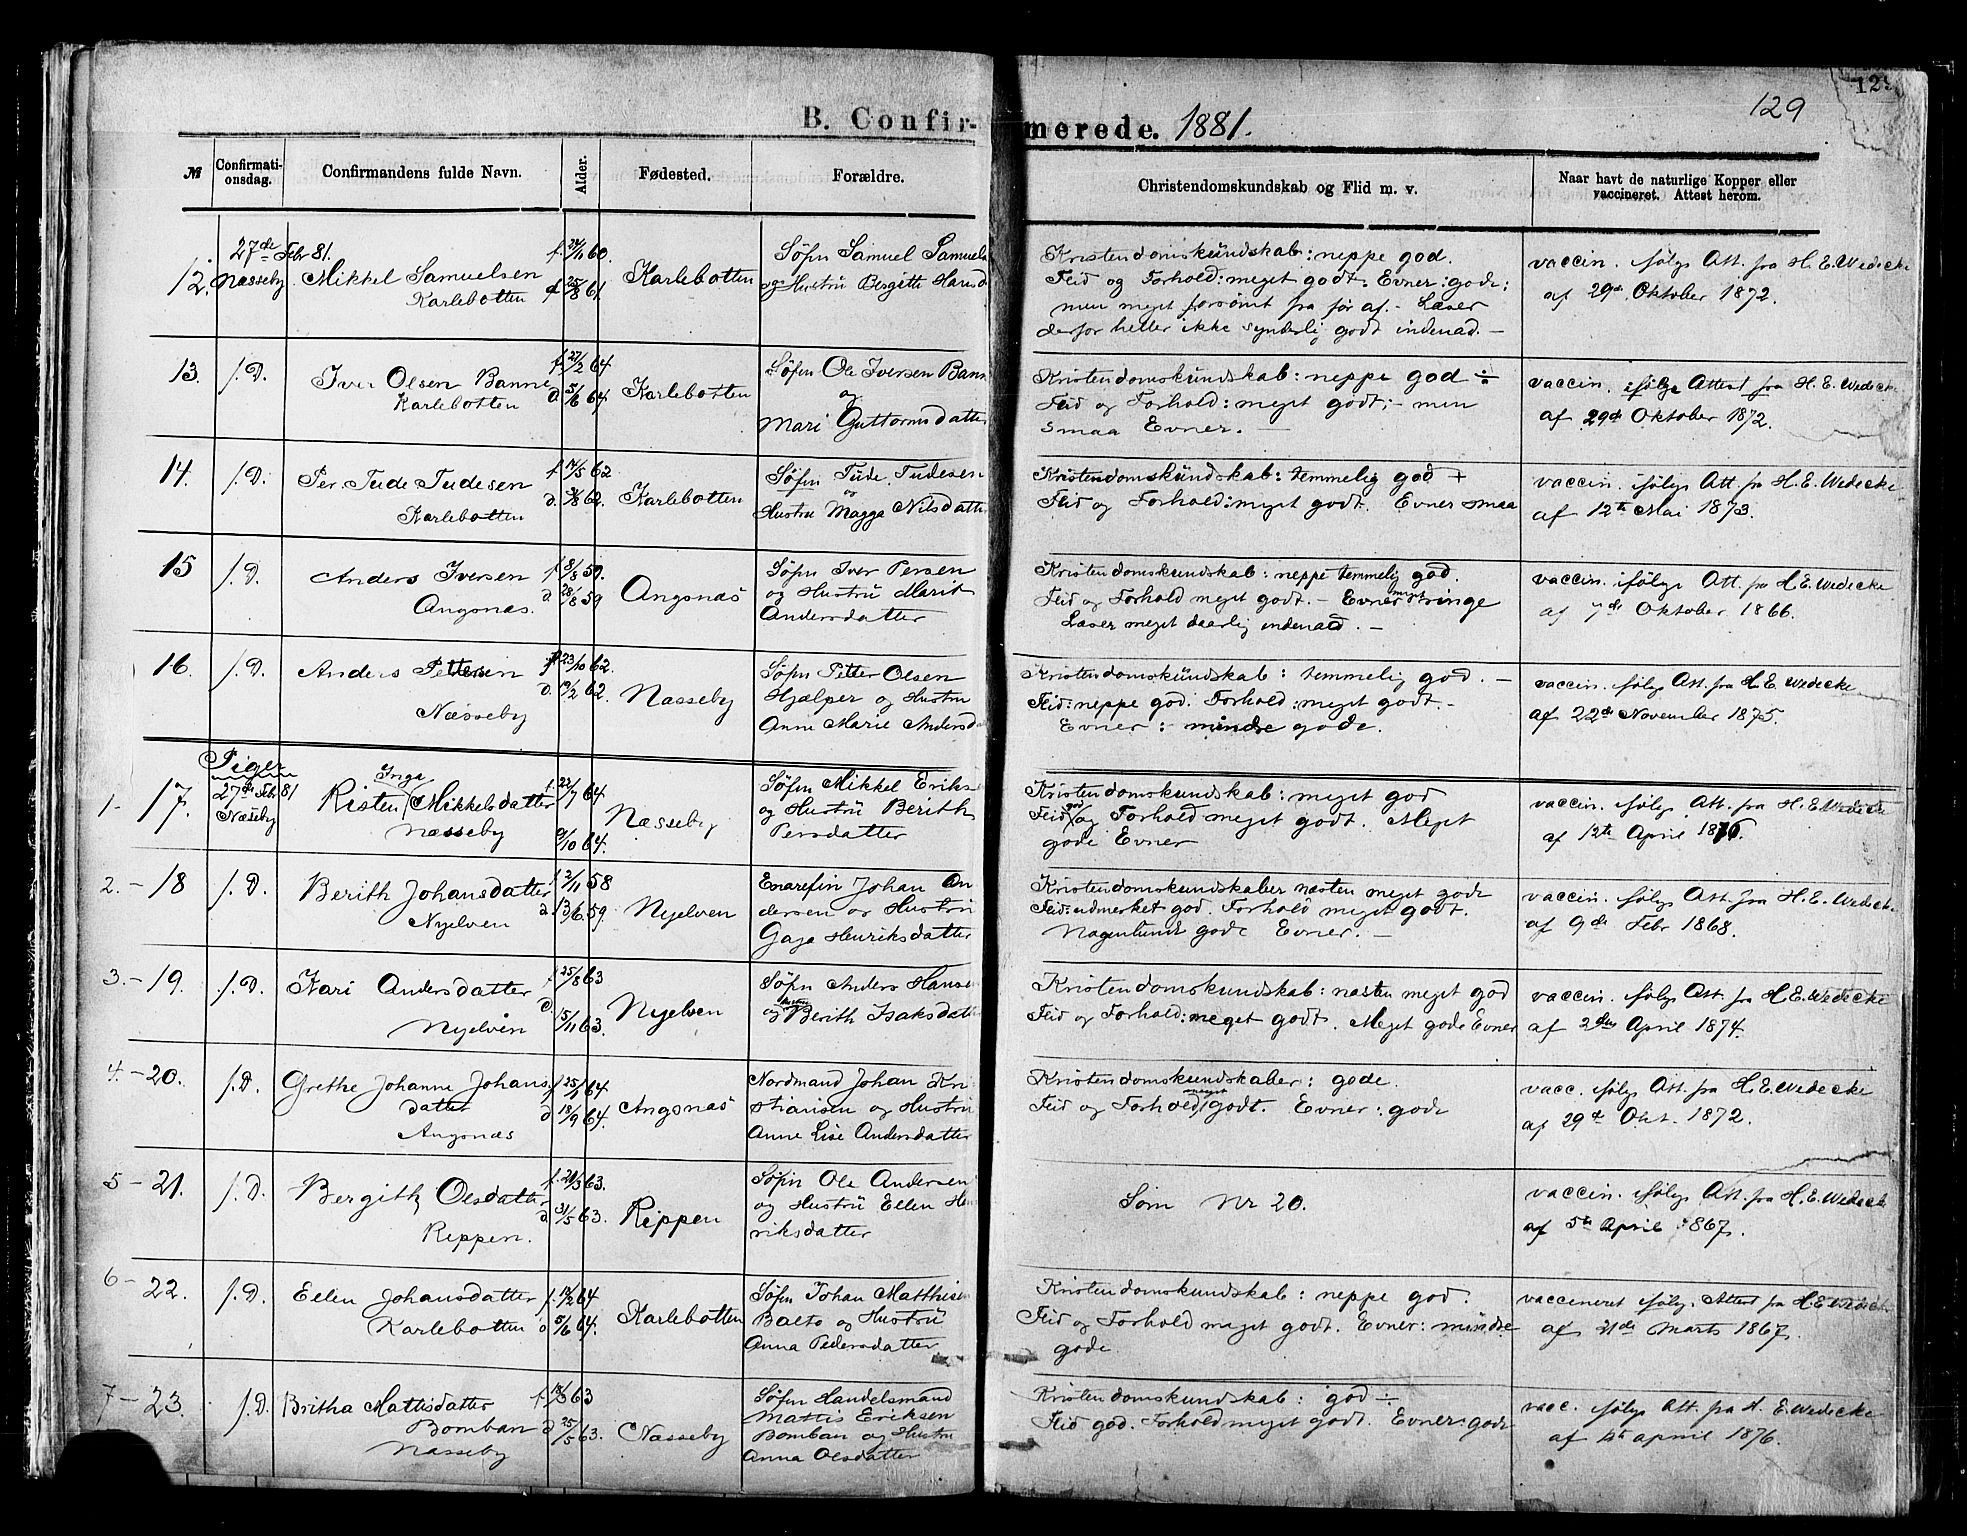 129
129
B. Confir-merede. 1881.
№ Confirmati-onsdag. Confirmandens fulde Navn. Alder. Fødested. Forældre. Christendomskundskab og Flid m. v. Naar havt de naturlige Kopper eller vaccineret. Attest herom.
27de Febr 81.
12. Næsseby Mikkel Samuelsen
Karlebotten
f. 60.
d 25/8 61
Karlebotten
Søfin Samuel Samuels
og Hustrü Birgitte Hansd
Kristendomskündskab: neppe god.
Flid og Forhold: meget godt. Evner: gode;
men meget forsömt fra før af. – Læser
derfor heller ikke synderlig godt indenad. –
vaccin. ifølge Att. fra H. E. Wedecke
af 29de Oktober 1872.
13. s. D. Iver Olsen Banne
Karlebotten
f. 27/2 64
d. 5/6 64
Karlebotten
Søfin Ole Iversen Bann
og
Mari Guttormsdatter
Kristendomskündskab: neppe god ÷
Flid og Forhold: meget godt; – men
smaa Evner. –
vaccin. ifølge Attest fra H. E. Wedeck
af 29de Oktober 1872.
14. s. D. Per Tude Tudesen
Karlebotten
f. 62
d. 62.
Karlebotten
Søfin Tüde Tudesen
og
Hustrü Magga Nilsdatte
Kristendomskündskab: temmelig god +
Flid og Forhold: meget godt. Evner smaa
vaccin. ifølge Att. fra H. E. Wedecke
af 12te Mai 1873.
15 s. D. Anders Iversen
Angsnæs.
f 8/8 59.
d. 28/8 59
Angsnæs
Søfin Iver Persen
og Hustrü Marit
Andersdatter
Kristendomskundskab: neppe temmelig god.
Flid og Forhold meget godt. – Evner meget ringe
Læser meget daarlig indenad. –
vaccin. ifølge Att. fra H. E. Wedecke
af 7de Oktober 1866.
16. s. D. Anders Pettersen
Næsseby
f 23/10 62.
d. 62.
Næsseby
Søfin Petter Olsen
Hjælper og Hustrü
Anne Marie Andersda
Kristendomskündskab: temmelig god. –
Flid: neppe god. Forhold: meget godt. –
Evner: mindre gode.
vaccin. ifølge Att. fra H. E. Wedecke
af 22de November 1875.
Piger
27de Febr 81
1- 17. Næsseby Risten Inga Mikkelsdatter
Næsseby
f. 64
9/10 64.
Næsseby
Søfin Mikkel Eriks
og Hustrü Berith
Persdatter
Kristendomskundskab: meget god
Flid god og Forhold meget godt. Meget
gode Evner
vaccin. ifølge Att. fra H. E. Wedecke
af 12te April 1876.
2.- 18 s. D. Berith Johansdatter
Nyelven
f. 58
d. 59
Nyelven
Enarefin Johan An
dersen og Hustrü
Gaga Henriksdatter
Kristendomskundskaber næsten meget gode
Flid: udmerket god. Forhold meget godt.
Nogenlunde gode Evner. –
vaccin. ifølge Att. fra H. E. Wedecke
af 9de Febr 1868.
3.- 19. s. D. Kari Andersdatter
Nyelven
f. 25/8 63
d. 15/11 63.
Nyelven
Søfin Anders Hanse
og Hustru Berith Isaksdatt
Kristendomskundskab: næsten meget god
Flid og Forhold: meget godt. Meget gode Evner
vaccin. ifølge Att. fra H. E. Wedecke
af 2den April 1874.
4.- 20. s. D. Grethe Johanne Johans
datter
Angsnæs
f 25/1 64
d 18/9 64.
Angsnæs
Nordmand Johan Kri
stiansen og Hustrü
Anne Lise Andersdatter
Kristendomskundskaber: gode.
Flid og Forhold meget godt. Evner: gode
vacc. ifølge Att. fra H. E. Wedecke
af 29de Okt. 1872.
5- 21. s. D. Bergith Olsdatter
Reppen.
f. 63.
d 31/5 63.
Reppen
Søfin Ole Andersen
og Hustrü Ellen Hen
riksdatter
Som Nr 20.
vaccin. ifølge Att. fra H. E. Wedecke
af 5te April 1867.
6- 22. s. D. Ellen Johansdatter
Karlebotten
f. 64.
d 5/6 64.
Karlebotten
Søfin Johan Matthisen
Balto og Hustrü
Anna Pedersdatter
Kristendomskundskab: neppe god.
Flid og Forhold meget godt. Evner: mindre
gode
vaccineret ifølge Attest fra H. E. Wedecke
af 21de Marts 1867.
7- 23. s. D. Britha Mattisdatter
Bomban
Næsseby
f 63
d 25/5 63.
Næsseby
Søfin Handelsmand
Mattis Eriksen
Bomban og Hustru
Anna Olsdatter
Kristendomskundskab: god ÷
Flid god. Forhold meget godt. Evner: gode
vacc. ifølge Att. fra H. E. Wedecke
af april 1876.